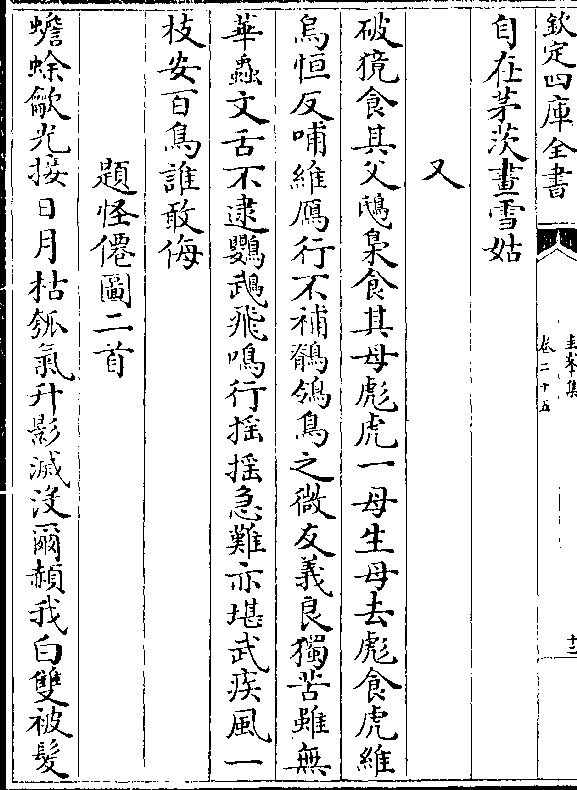 欽定四庫全書
圭峯集
卷二十五
十二
自在茅茨畫雪姑
又
破獍食其父鴟梟食其母彪虎一母生母去彪食虎維
烏恒反哺維鴈行不補鶺鴒鳥之微友義良獨苦雖無
華蟲文舌不逮鸚鵡飛鳴行搖搖急難亦堪武疾風一
枝安百鳥誰敢侮
題怪僊圖二首
蟾蜍歙光接日月枯瓠氣升影滅沒爾頳我白雙被髮